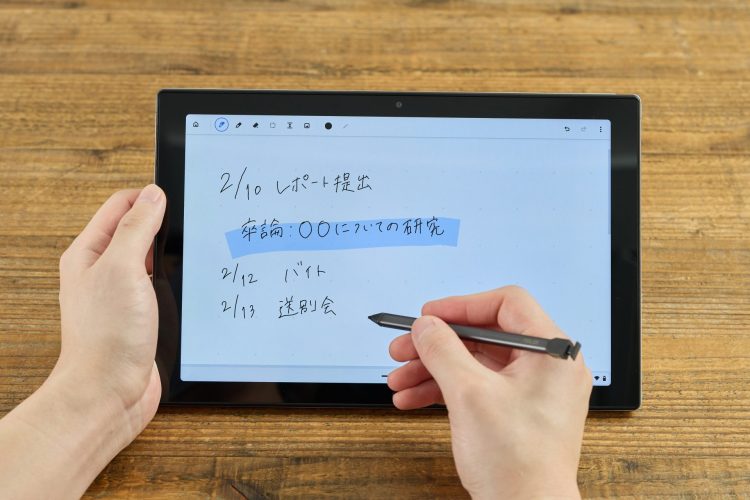 2/10 レポート提出
卒論:〇〇についての研究
2/12 バイト
2/13 送別会